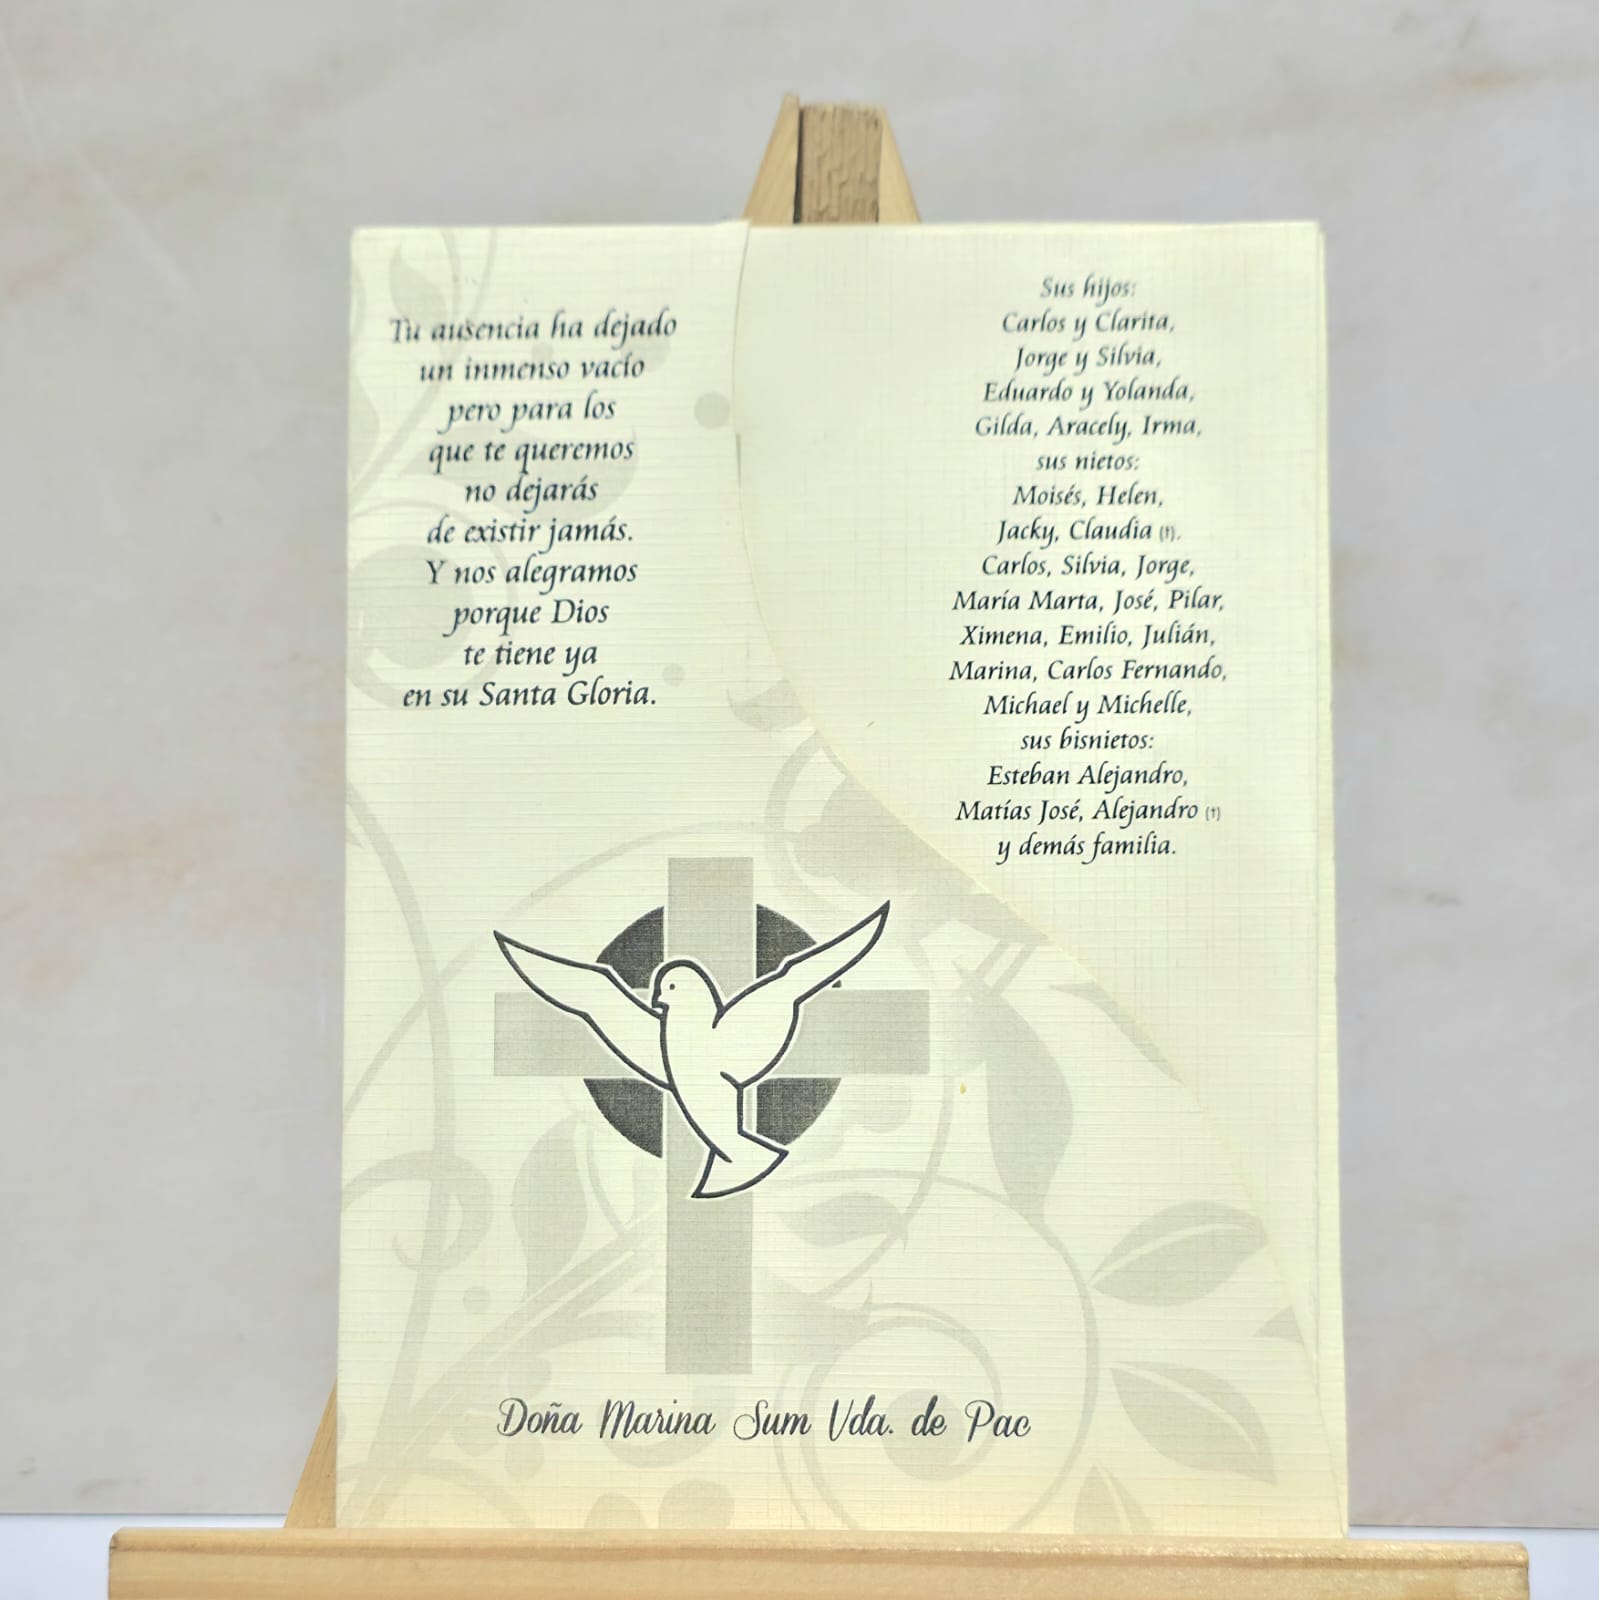 Tu ausencia ha dejado
un inmenso vacío
pero para los
que te queremos
no dejarás
de existir jamás.
Y nos alegramos
porque Dios
te tiene ya
en su Santa Gloria.
Sus hijos:
Carlos y Clarita,
Jorge y Silvia,
Eduardo y Yolanda,
Gilda, Aracely, Irma,
sus nietos:
Moisés, Helen,
Jacky, Claudia (†).
Carlos, Silvia, Jorge,
María Marta, José, Pilar,
Ximena, Emilio, Julián,
Marina, Carlos Fernando,
Michael y Michelle,
sus bisnietos:
Esteban Alejandro,
Matías José, Alejandro (†)
y demás familia.
Doña Marina Sum Vda. de Pac